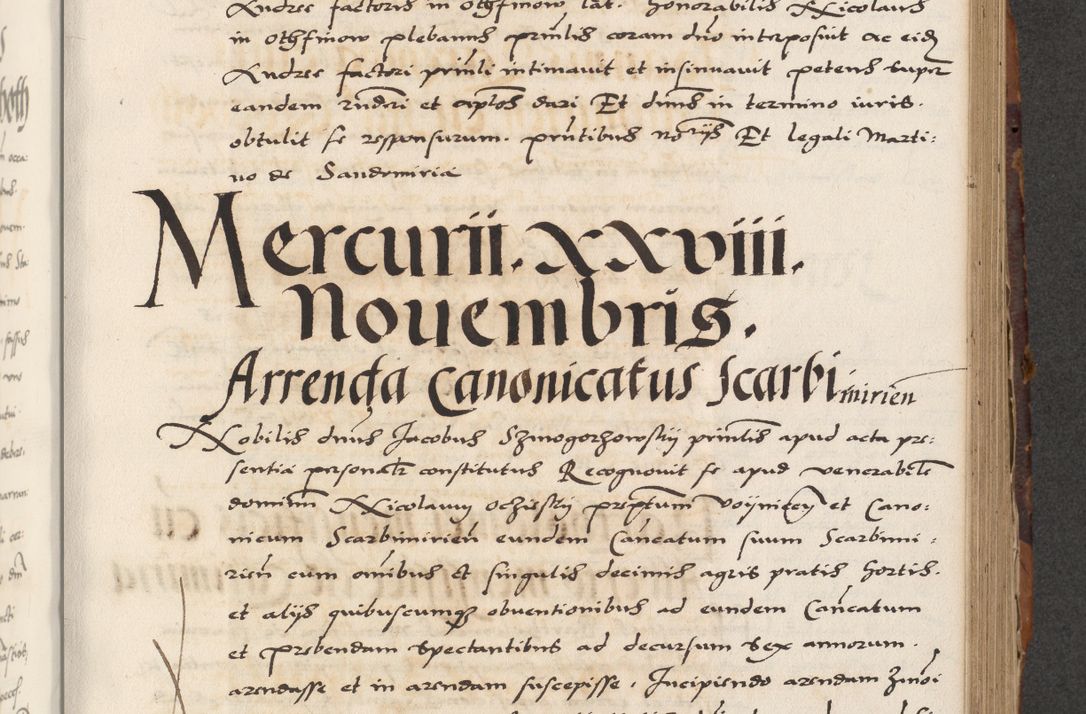 Andree factoris in Othfinow lat. Honorabilis Nicolaus
in Othfinow plebanus prinlis coram dno interposuit ac eidē
Andree factori prinli intimauit et insinuauit petens super
eandem et aplōs dari Et dnus in termino iuris.
obtulit se responsurum. pntibus noriis Et legali Marti:
no de Sandomiria
Mercurii. xxviii.
Nouembris.
Arrenda Canonicatus Scarbimirien
Nobilis dnus Jacobus Szmogorzhowskij printis apud acta pre:
sentia personalr constitutus Recognouit se apud venerabilē
dominū Nicolaum Ochieskij preptum Voijnicen et Cano:
nicum Scarbimirien eundem Cancatum suum Scarbimi:
rien cum omibus et singulis decimis agris pratis hortis.
et alijs quibuscumqȝ obuentionibus ad eundem Cancatum
et prebendam spectantibus ad decursum sex annorum.
arendasse et in arendam suscepisse. Incipiendo arendam